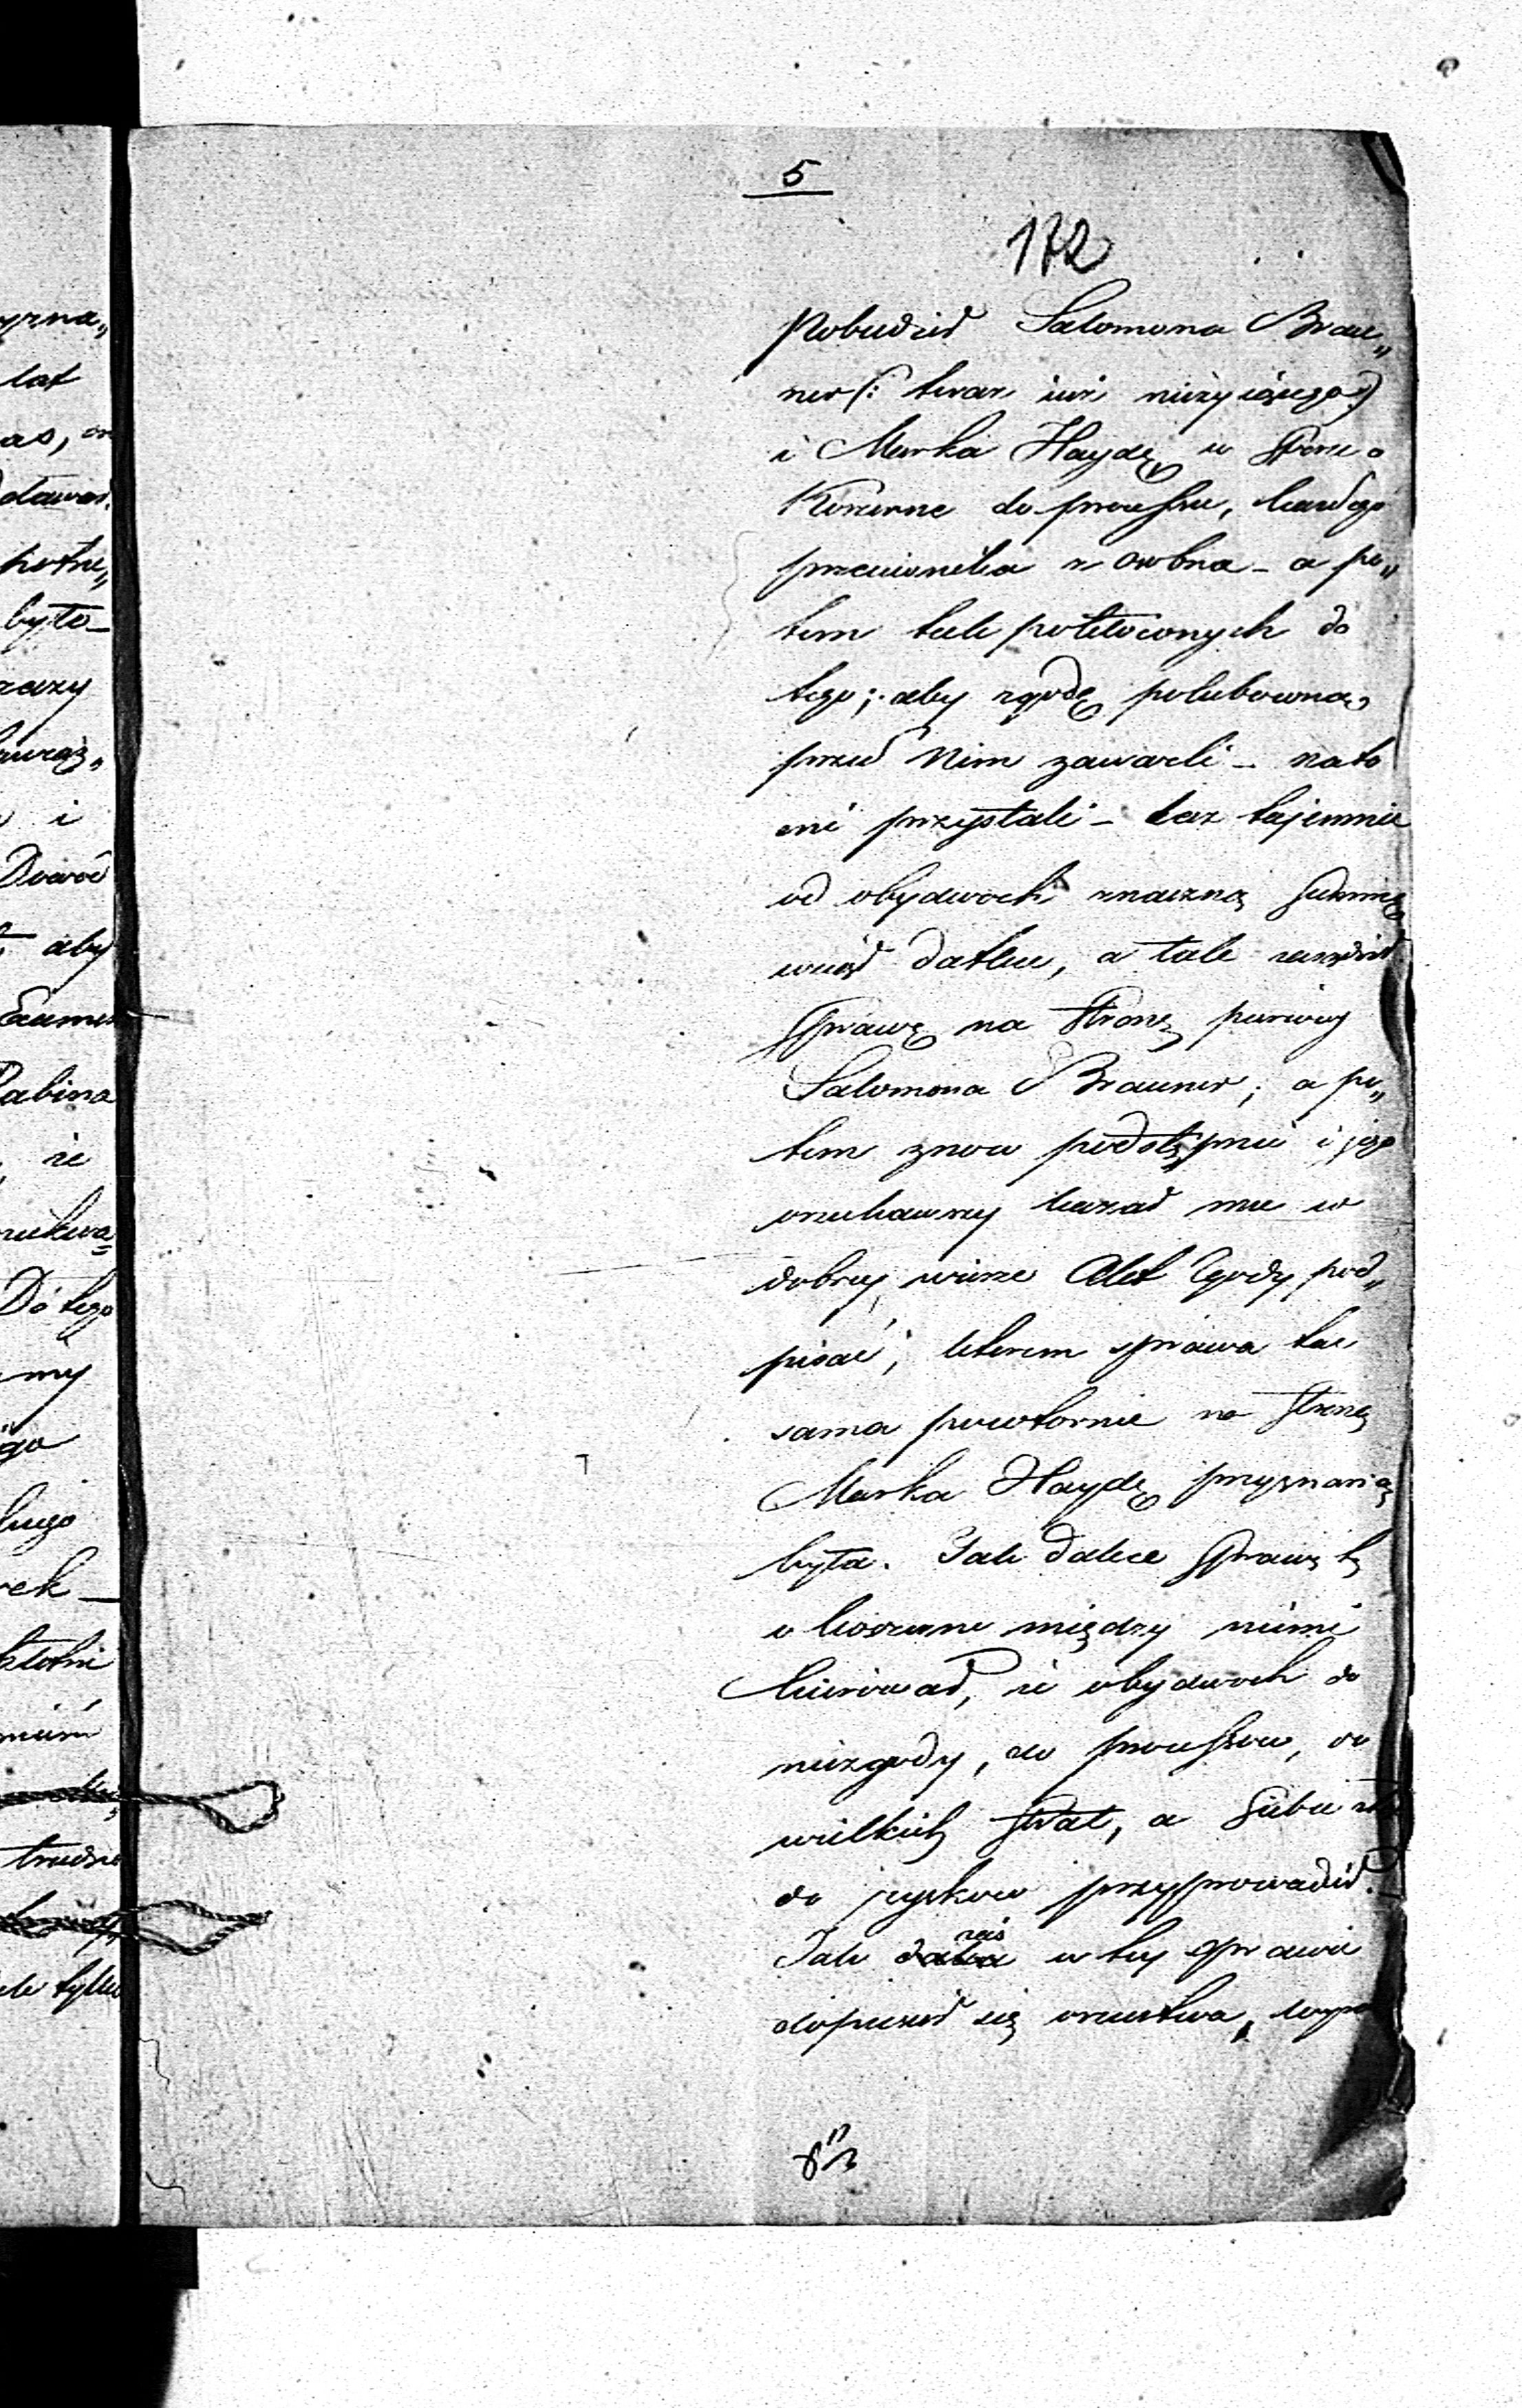 5
172
Pobudził Salomona Brau„
ner (: teraz już nieżyiącego :)
i Marka Haydę w sporze o
Koszerne do processu, każdego
przeciwnika z osobna - a po„
tem tak pokłóconych do
tego; aby zgodę polubowną
przed Nim zawarli - na to
oni przystali - lecz tajemnie
od obydwoch znaczną summę
wziął datku, a tak
sprawę na stronę pierwey
Salomona Brauner; a po„
tem znow podstępnie i jego
oszukawszy kazał mu w
dobrey wierze Akt Zgody pod„
pisać; którem sprawa ta
sama powtornie na stronę
Marka Haydę przyznaną
była. Tak dalece sprawę tę
o koszerne między niemi
kierował, że obydwoch do
niezgody, do processow, do
wielkich strat, a siebie
do zyskow przyprowadził.
Jak zaś w tey sprawie
dopuścił się oszustwa,
yzna„
lat
as,
potrze„
było -
razy
i
Dowod
aby
Rabina
że
Do tego
my
ek -
trudno
tylko